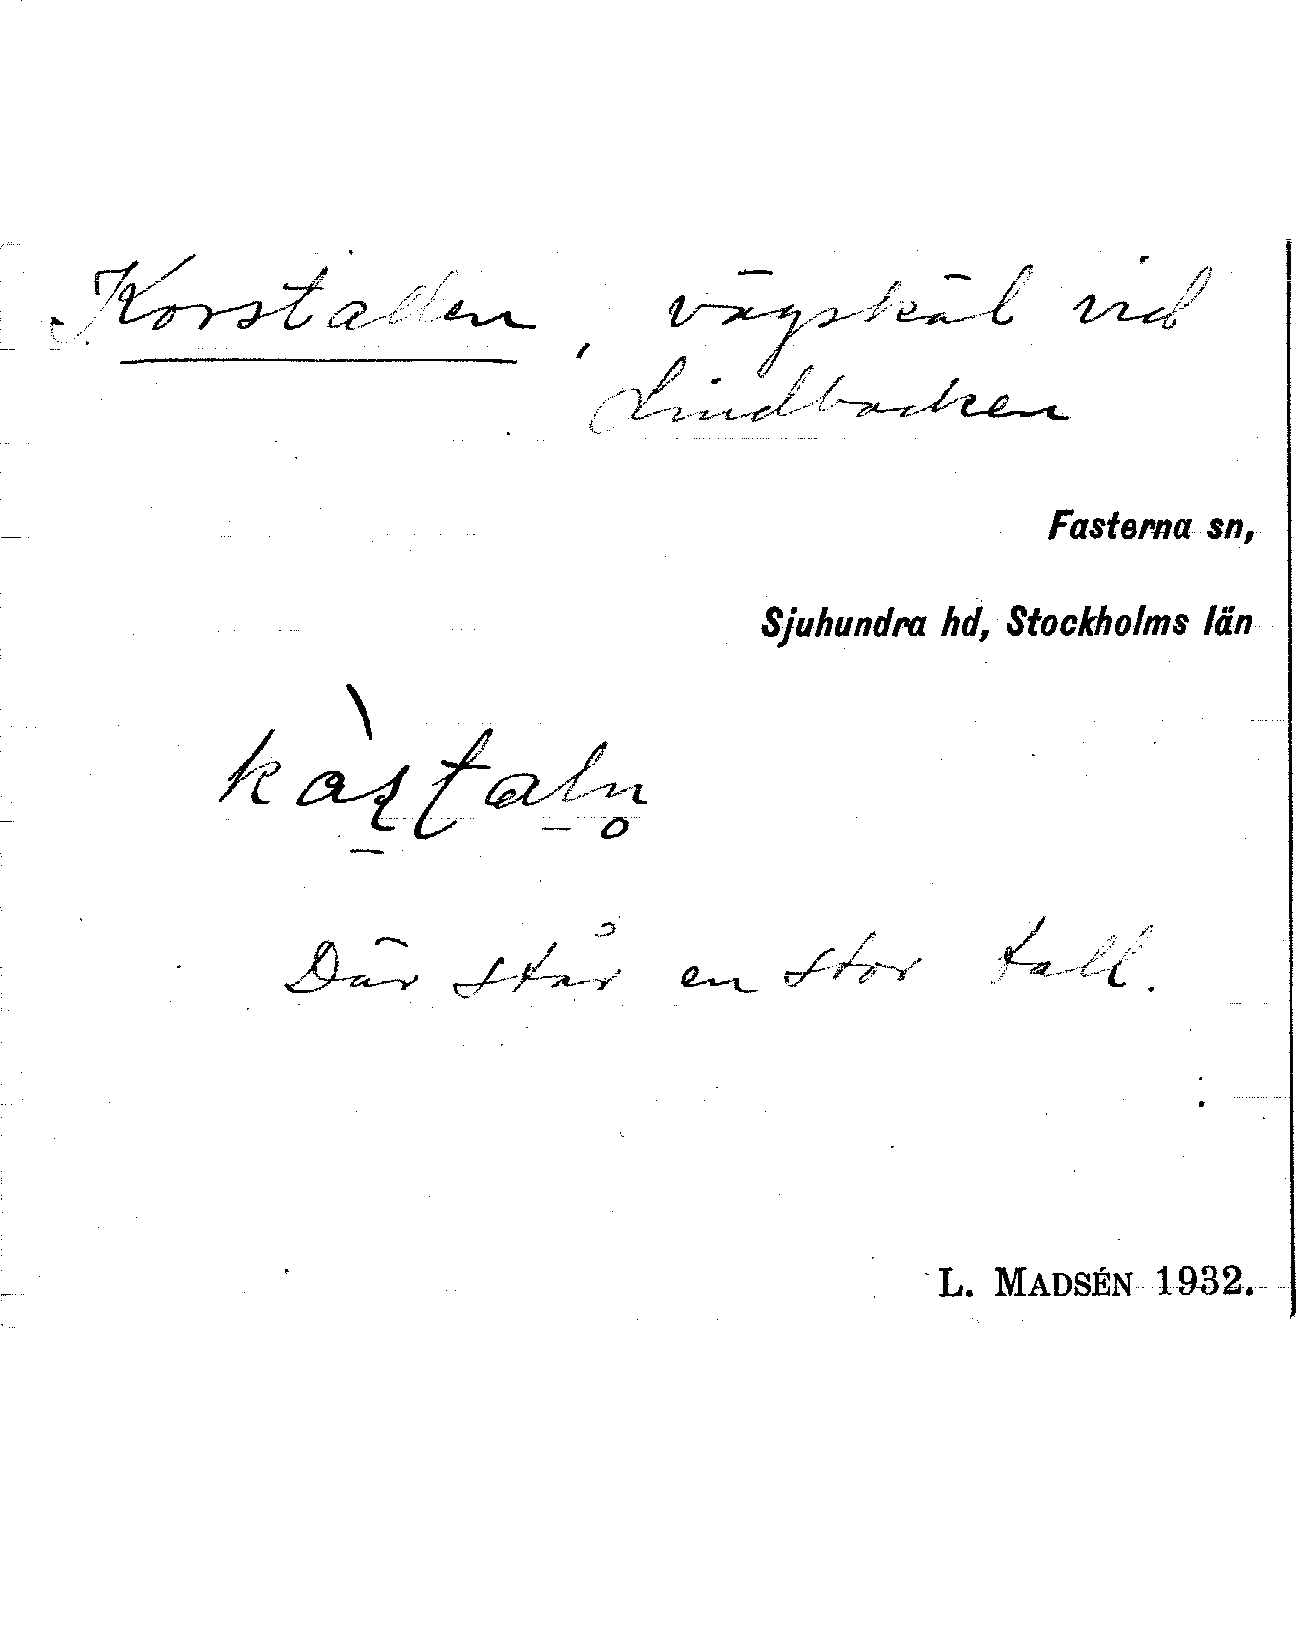 Korstallen, vägskäl vid
Lindbacken
Fasterna sn,
Sjuhundra hd, Stockholms län
Där står en stor tall.
L. MADSÉN 1932.